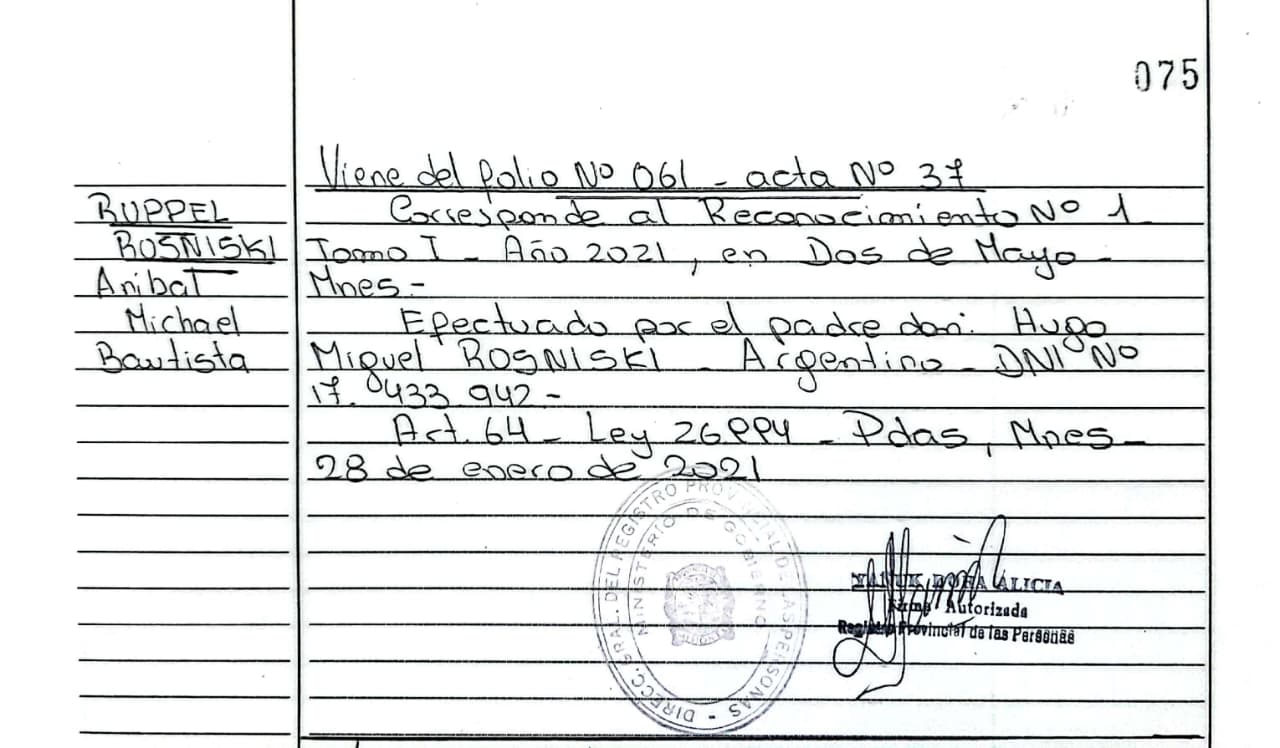 075
Viene del folio Nº 061 - acta Nº 37
RUPPEL
ROSNISKI
Anibal
Michael
Bautista
Corresponde al Reconocimiento Nº 1
Tomo I - Año 2021, en Dos de Mayo -
Mnes -
Efectuado por el padre don: Hugo
Miguel ROSNISKI - Argentino - DNI Nº
17.433.942 -
Art. 64 - Ley 26994 - Pdas, Mnes -
28 de enero de 2021
DIRECC. GRAL. DEL REGISTRO PROVINCIAL DE LAS PERSONAS -
MINISTERIO DE GOBIERNO
ALICIA
Firma Autorizada
Registro Provincial de las Personas